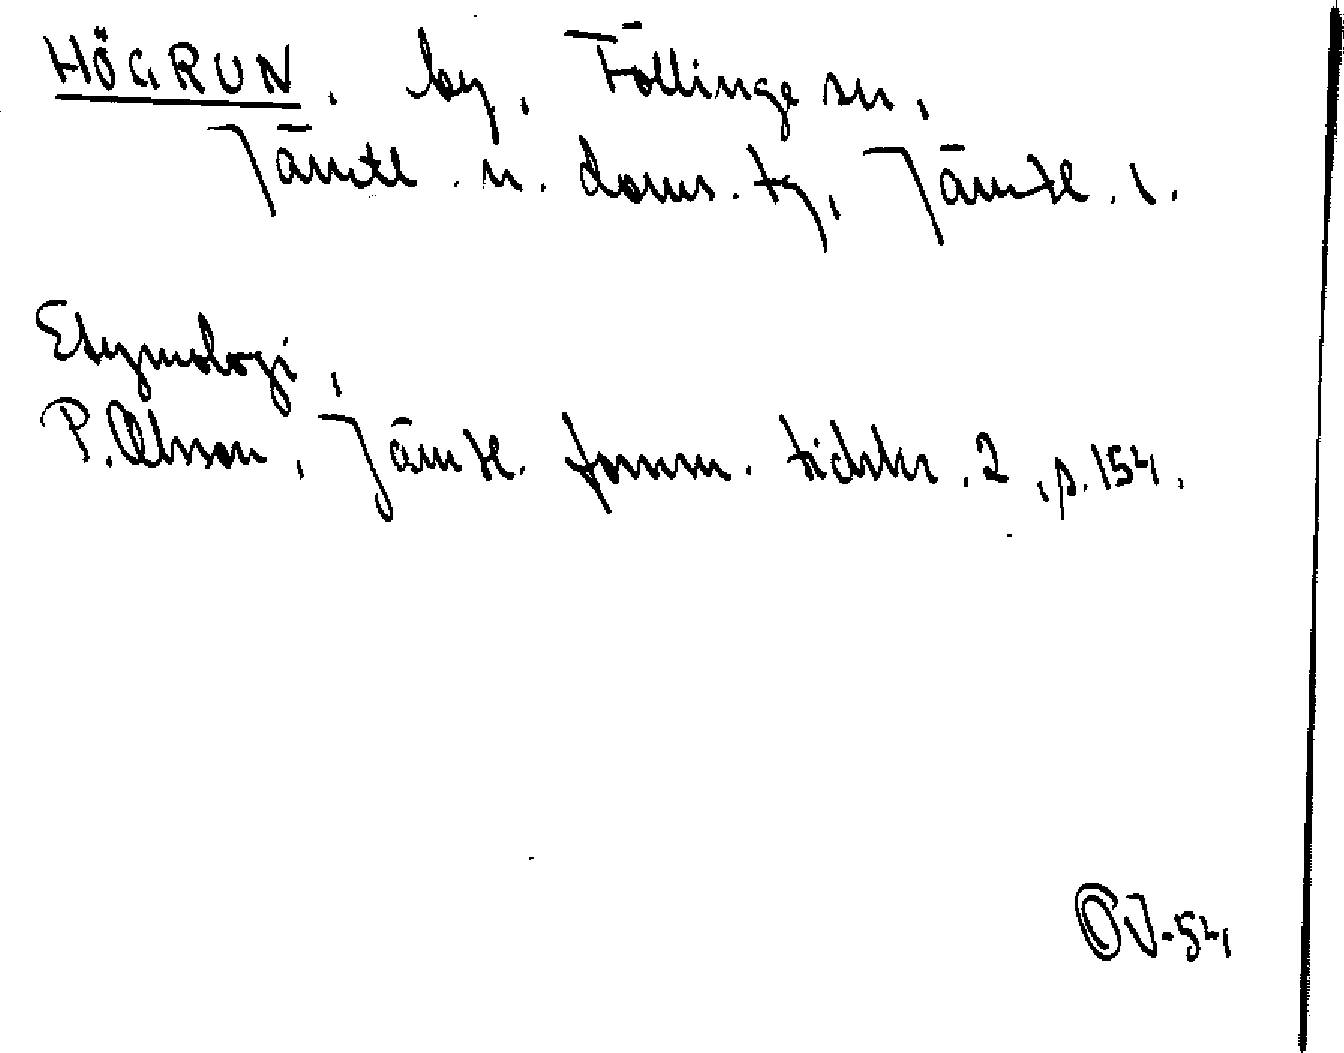 HÖGRUN. by, Föllinge sn,
Jämtl. n. doms. tg, Jämtl. l.
Etymologi,
P. Olsson, Jämtl. fornm. tidskr. 2, p. 154.
OJ-54